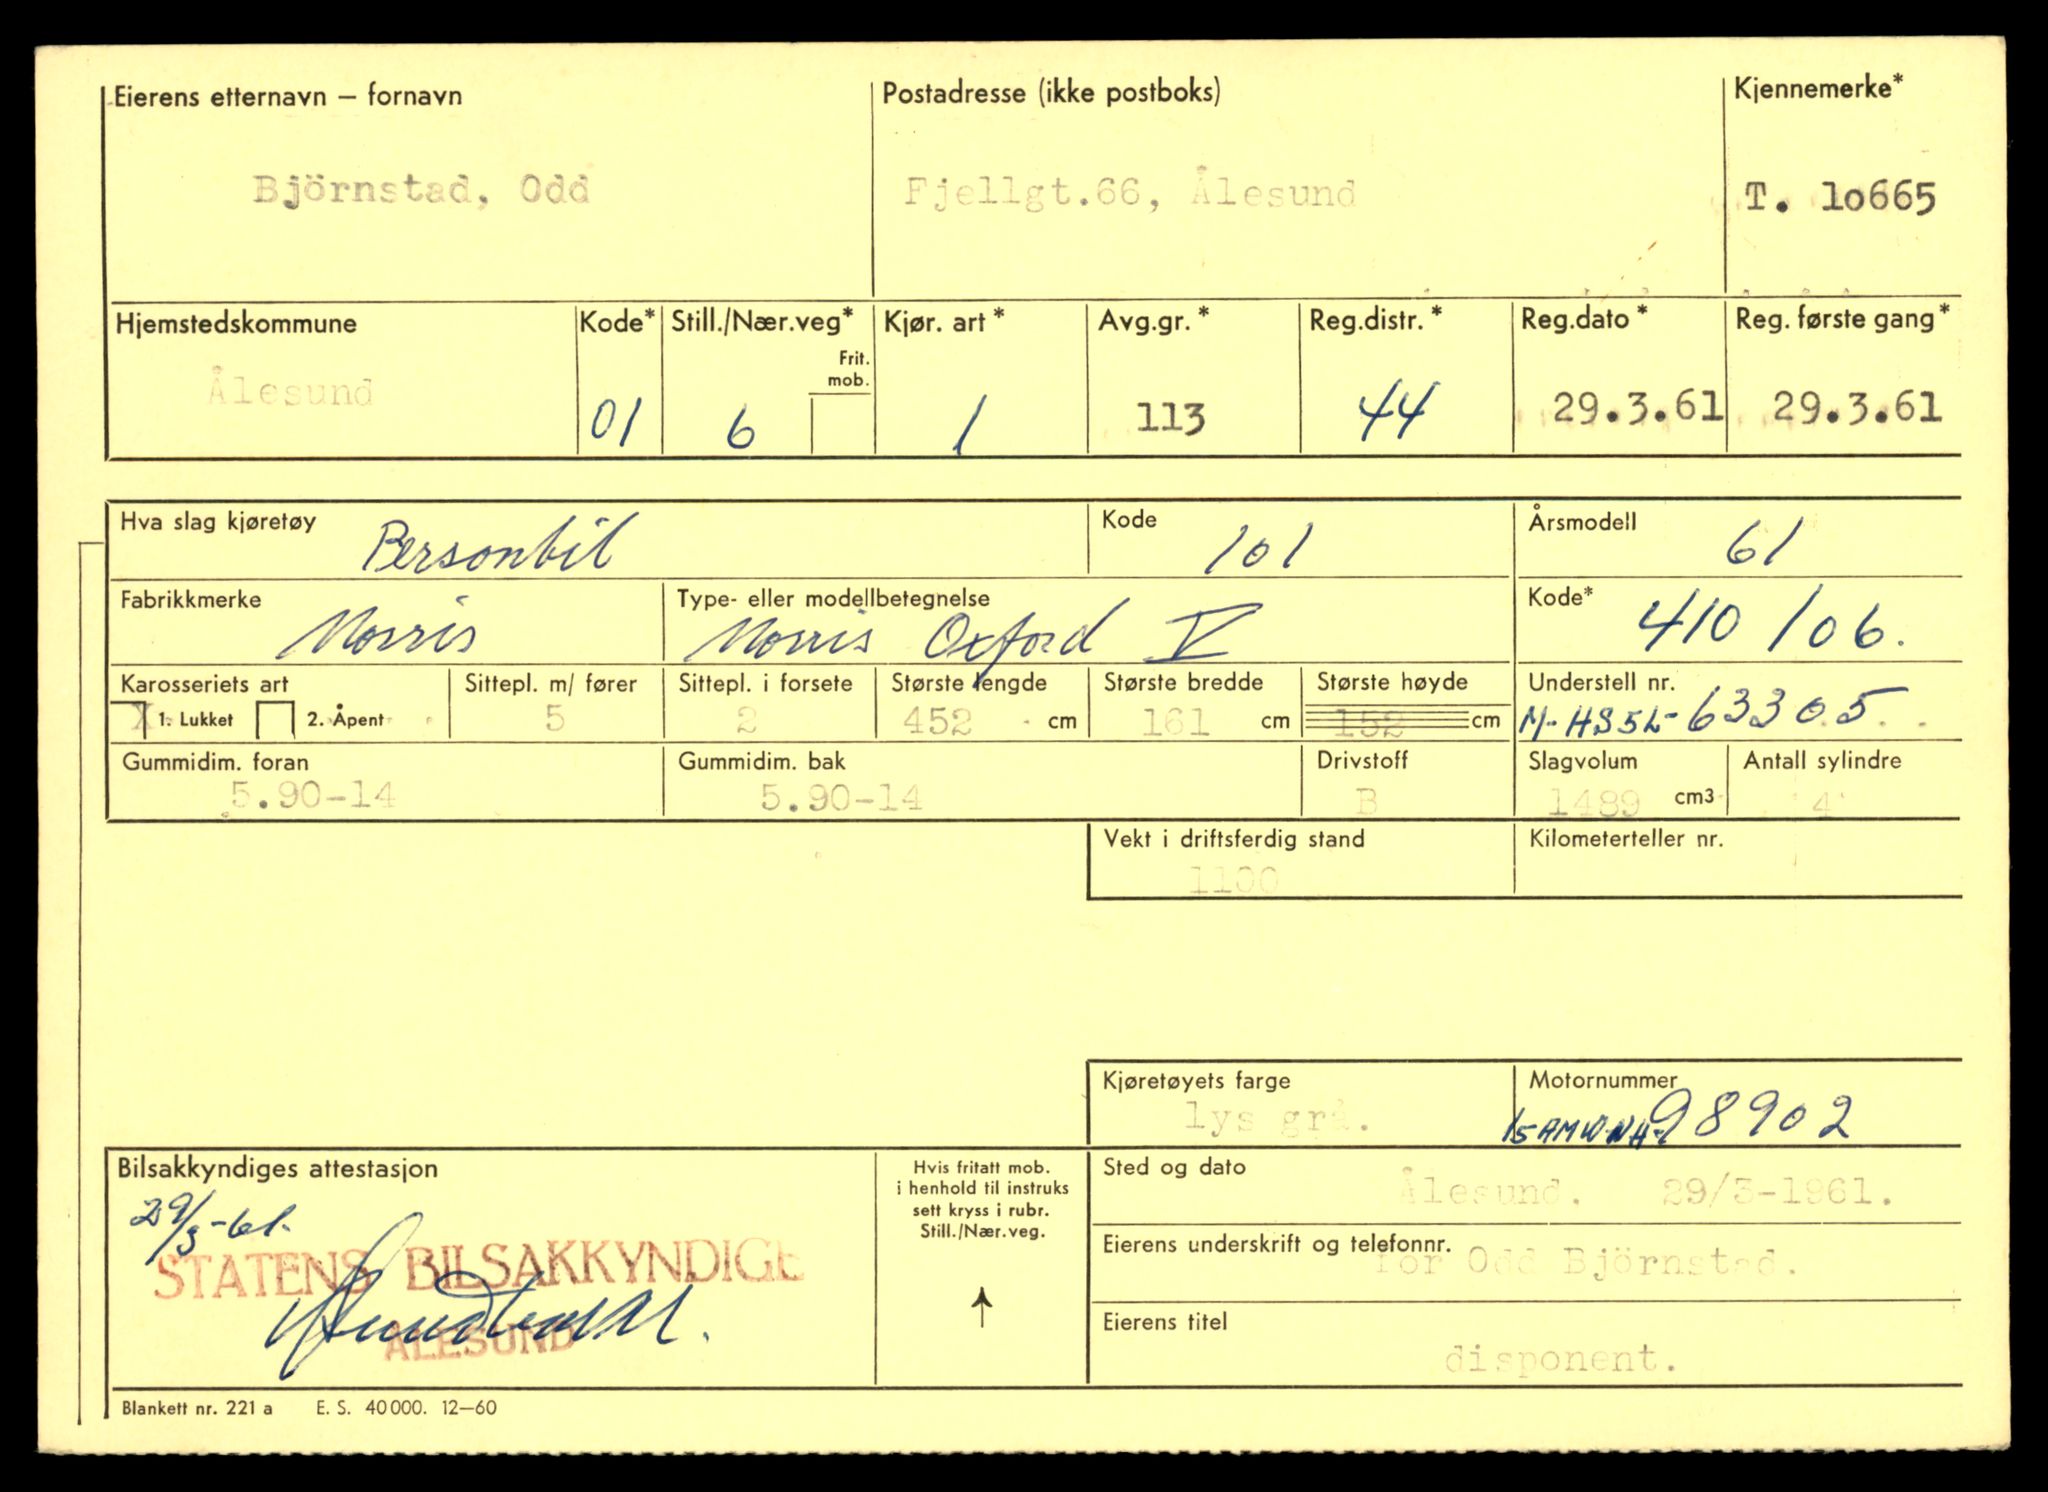 Eierens etternavn — fornavn Postadresse (ikke postboks) Kjennemerke*
Björnstad, Odd Fjellgt.66, Ålesund T. 10665
Hjemstedskommune Kode* Still./Nær.veg* Kjør. art* Avg.gr.* Reg.distr.* Reg.dato* Reg. første gang*
Frit. mob.
Ålesund 01 6 1 113 44 29.3.61 29.3.61
Hva slag kjøretøy Personbil Kode 101 Årsmodell 61
Fabrikkmerke Morris Type- eller modellbetegnelse Morris Oxford V Kode* 410 106.
Karosseriets art Sittepl. m/ fører Sittepl. i forsete Største lengde Største bredde Største høyde Understell nr.
X 1. Lukket 2. Åpent 5 2 452 cm 161 cm 152 cm M-HS5L-63305
Gummidim. foran Gummidim. bak Drivstoff Slagvolum Antall sylindre
5.90-14 5.90-14 B 1489 cm3 4
Vekt i driftsferdig stand Kilometerteller nr.
1100
Kjøretøyets farge Motornummer
lys grå. 98902
Bilsakkyndiges attestasjon
29/3-61.
STATENS BILSAKKYNDIGE
ÅLESUND
Hvis fritatt mob.
i henhold til instruks
sett kryss i rubr.
Still./Nær.veg.
Sted og dato
Ålesund. 29/3-1961.
Eierens underskrift og telefonnr.
for Odd Björnstad.
Eierens titel
disponent.
Blankett nr. 221 a E. S. 40 000. 12—60